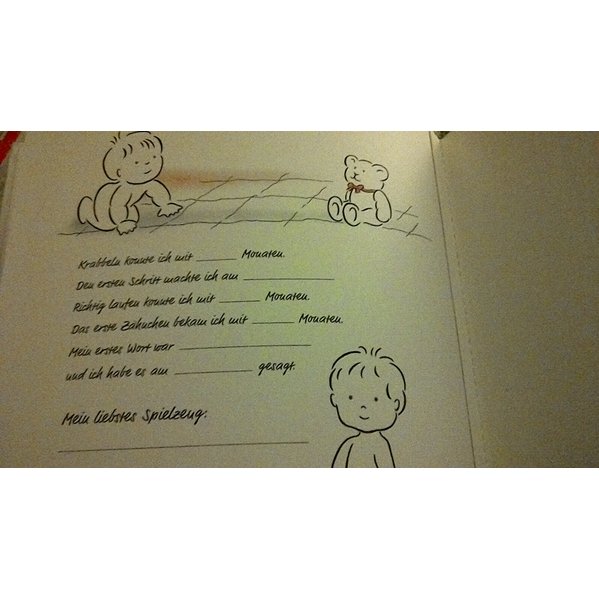 Krabbeln konnte ich mit ______ Monaten.
Den ersten Schritt machte ich am ______________
Richtig laufen konnte ich mit ______ Monaten.
Das erste Zähnchen bekam ich mit ______ Monaten.
Mein erstes Wort war ____________________
und ich habe es am ____________ gesagt.
Mein liebstes Spielzeug: